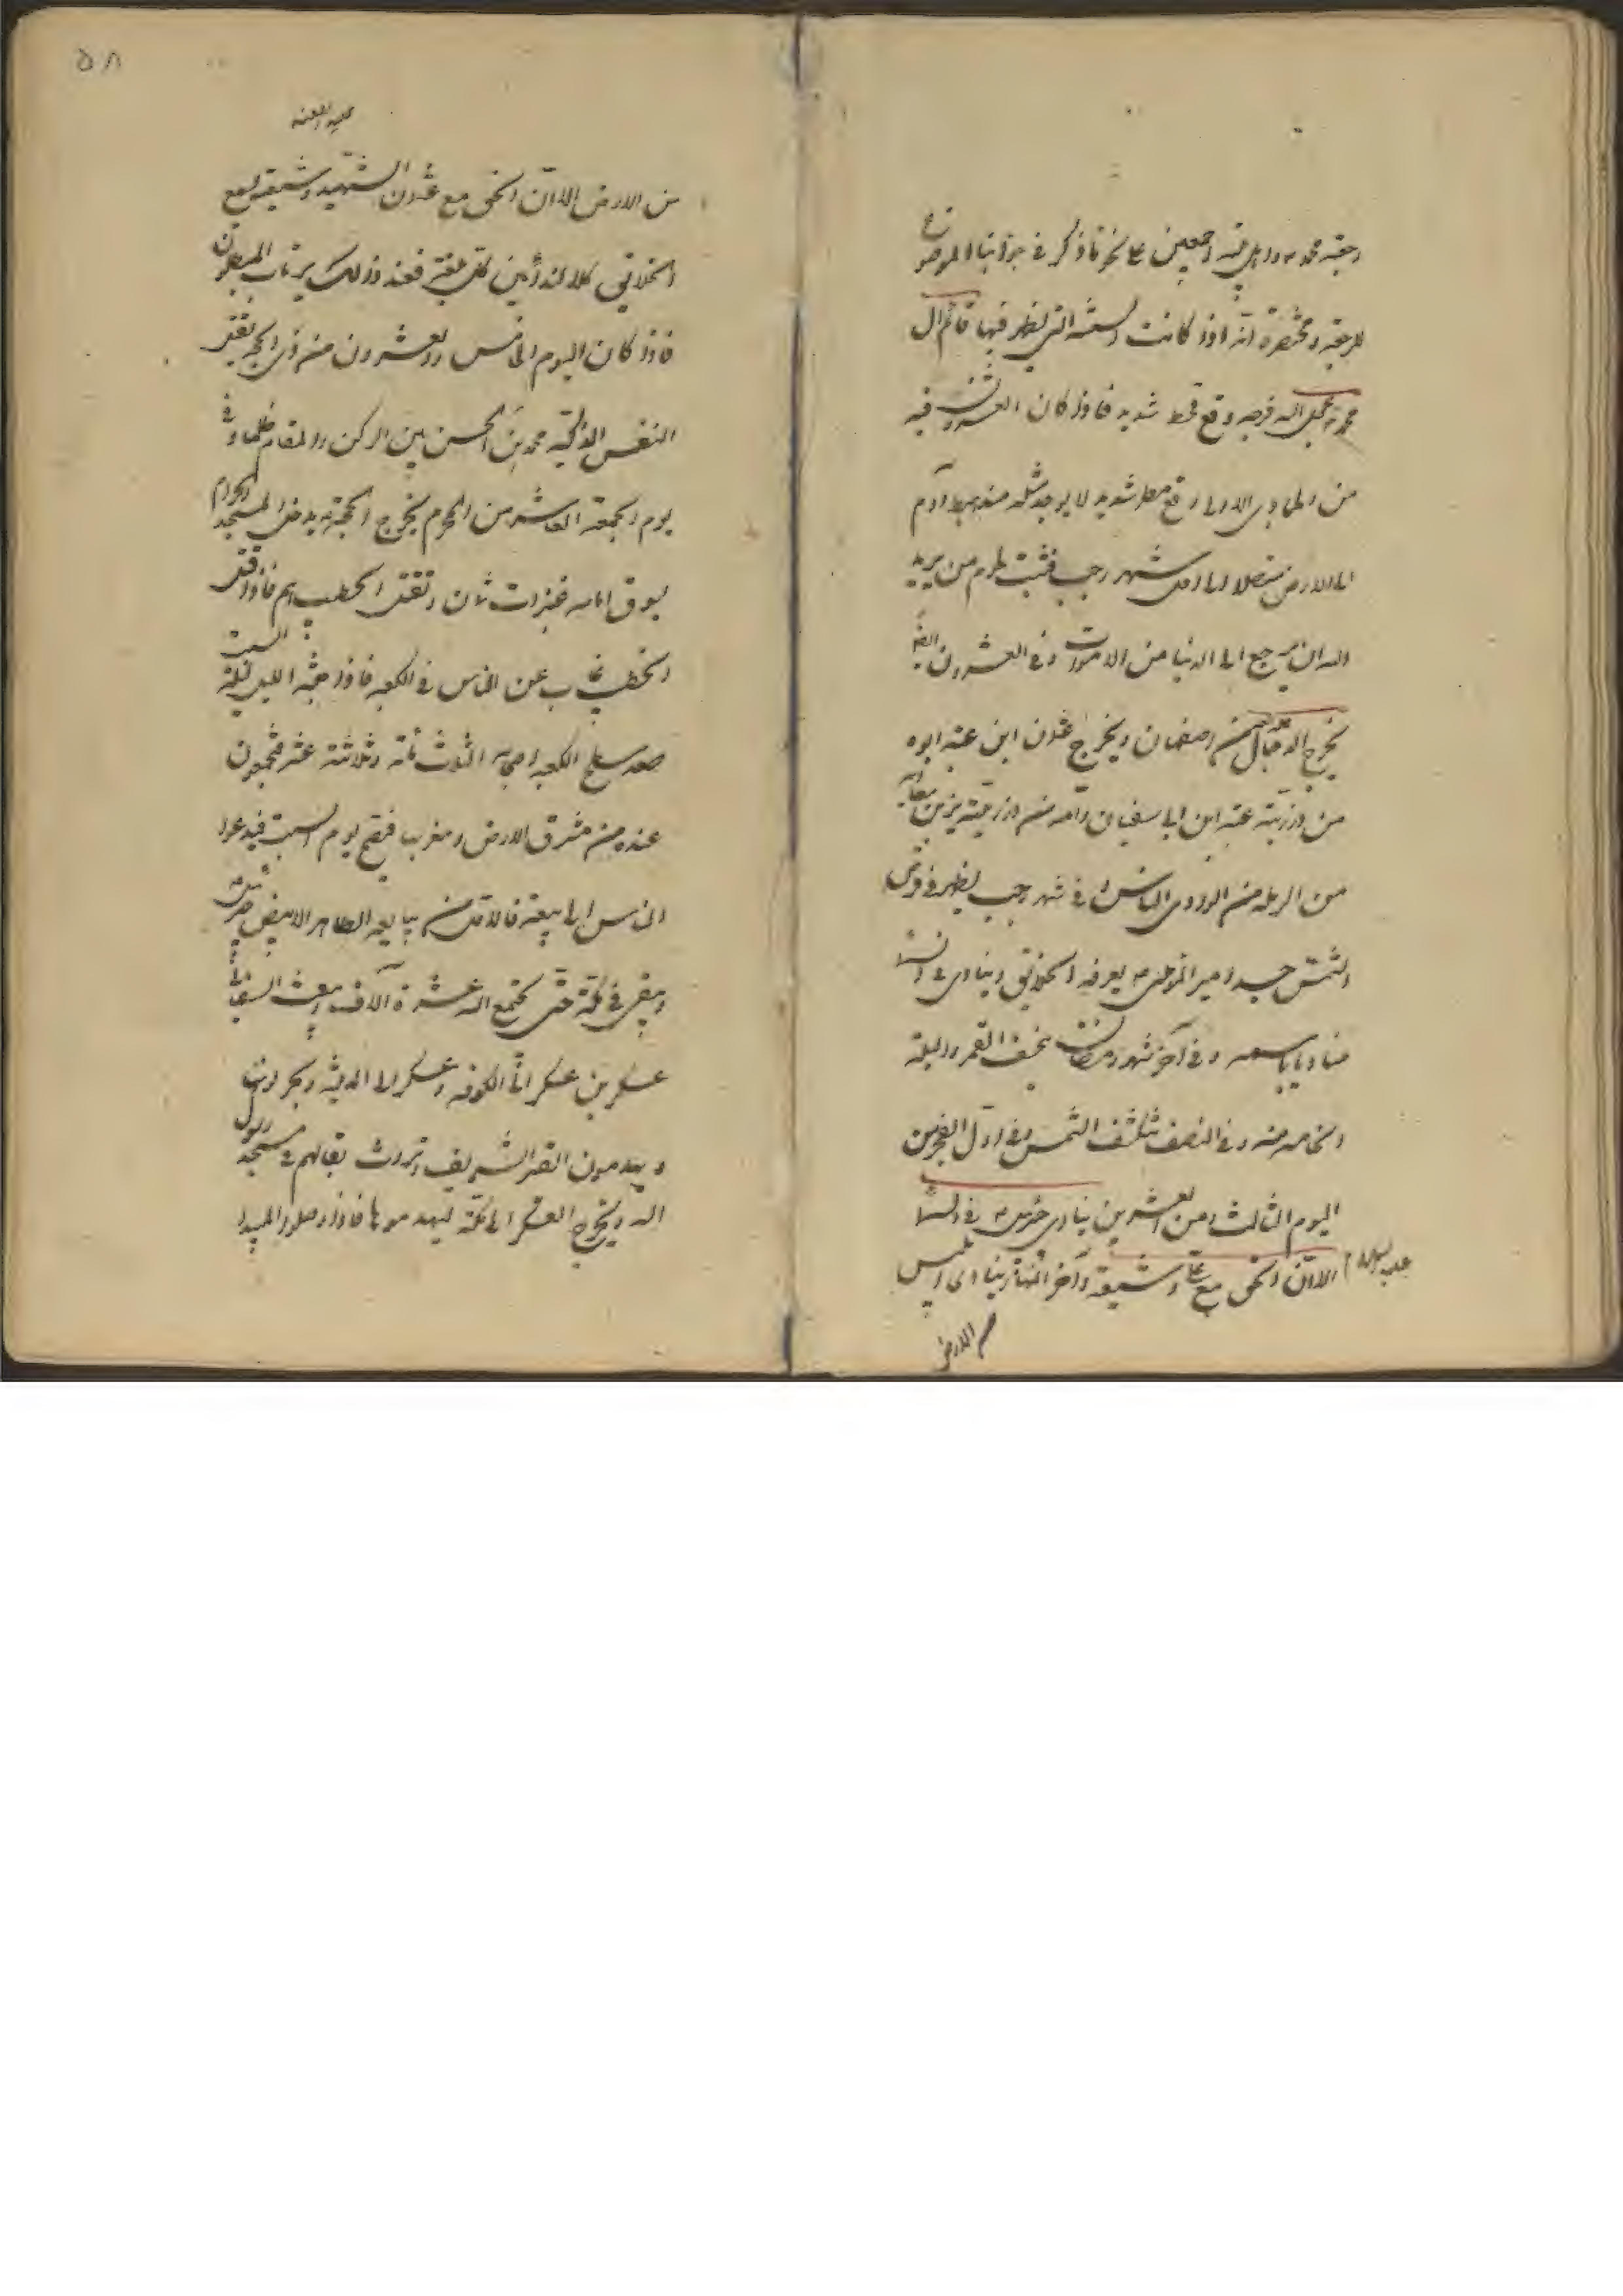 رجعة محمد ص واهل بيته اجمعين على نحو ما ذكر في جوابنا الموضوع
للرجعة ومختصره انه اذا كانت السنة التي يظهر فيها قائم ال
محمد عجل الله فرجه وقع قحط شديد فاذا كان العشرون فيه
من الجمادى الاولى وقع مطر شديد لا يوجد مثله منذ هبط آدم
الى الارض متصلا الى اول شهر رجب فتنبت لحوم من يريد
الله ان يرجع الى الدنيا من الاموات وفي العشرون ايضا
يخرج الدجال من اصفهان ويخرج عثمان ابن عنبسة ابوه
من ذرية عتبة ابن ابي سفيان وامه من ذرية يزيد بن معاوية
من الرملة من الوادي اليابس و في شهر رجب يظهر في قرص
الشمس جسد امير المؤمنين ع يعرفه الخلائق وينادي في السماء
مناد باسمه و في آخر شهر رمضان ينخسف القمر وليلة
الخامسة منه وفي النصف تنكسف الشمس وفي اول الفجر من
اليوم الثالث من العشرين ينادي جبرئيل ع في السماء
الا ان الحق مع علي وشيعته وآخر النهار ينادي ابليس
عليه السلام
من الارض
٥٨
عليه اللعنة
من الارض الا ان الحق مع عثمان الشهيد وشيعته يسمع
الخلائق كلا الندائين كل بلغته فعند ذلك يرتاب المبطلون
فاذا كان اليوم الخامس والعشرون من ذي الحجة يقتل
النفس الزكية محمد بن الحسن بين الركن والمقام ظلما وفي
يوم الجمعة العاشر من المحرم يخرج الحجة ع يدخل المسجد الحرام
يسوق امامه عنيزات ثمان وتقتل الخطيب فاذا قتل
الخطيب غاب عن الناس في الكعبة فاذا جنه الليل ليلة السبت
صعد سطح الكعبة اصحابه الثلاث مائة وثلاثة عشر فيجتمعون
عنده من مشرق الارض ومغربها فيصبح يوم السبت فيدعو
الناس الى بيعته فالاول من يبايعه الطاهر الابيض جبرئيل
ويبقى في مكة حتى يجتمع اليه عشرة آلاف ويبعث السفياني
عسكرين عسكرا الى الكوفة وعسكر الى المدينة ويخربونها
ويهدمون القبر الشريف وتروث بغالهم في مسجد رسول
الله ويخرج العسكر الى مكة ليهدموها فاذا وصلوا البيداء